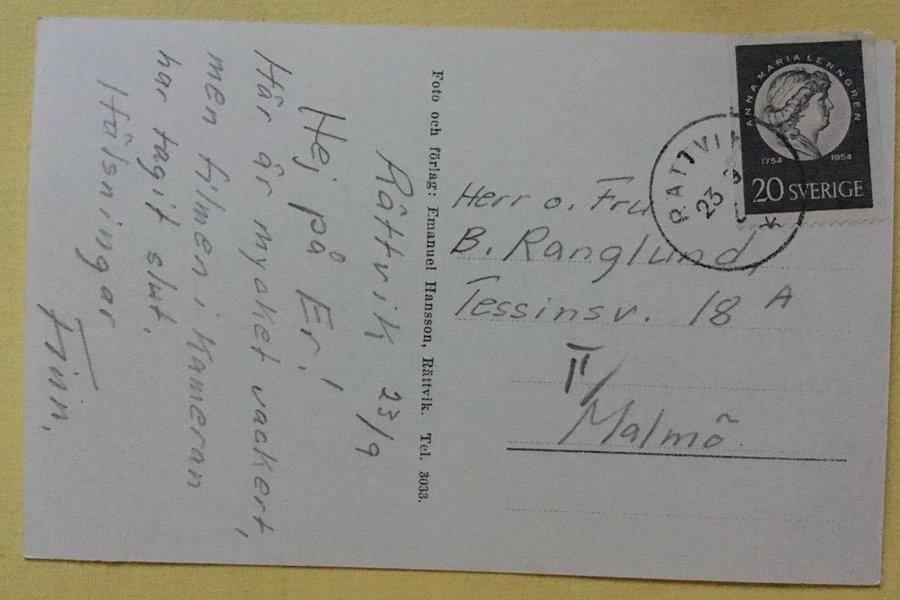 Rättvik 23/9
Hej på Er!
Här är mycket vackert,
men filmen i kameran
har tagit slut.
Hälsningar
Finn.
Foto och förlag: Emanuel Hansson, Rättvik. Tel. 3033.
ANNA MARIA LENNGREN
1754 1954
20 SVERIGE
RÄTTVIK
23 9
Herr o. Fru
B. Ranglund,
Tessinsv. 18 A
II/
Malmö